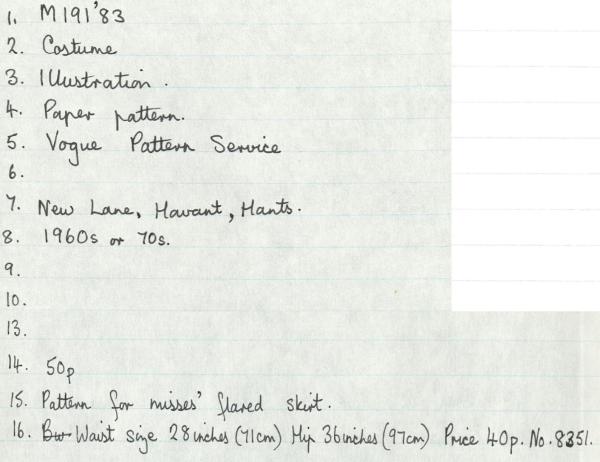 1. M191'83
2. Costume
3. Illustration.
4. Paper pattern.
5. Vogue Pattern Service
6.
7. New Lane, Havant, Hants.
8. 1960s or 70s.
9.
10.
13.
14. 50p
15. Pattern for misses' flared skirt.
16. Waist size 28 inches (71cm) Hip 36 inches (97cm) Price 40p. No. 8351.